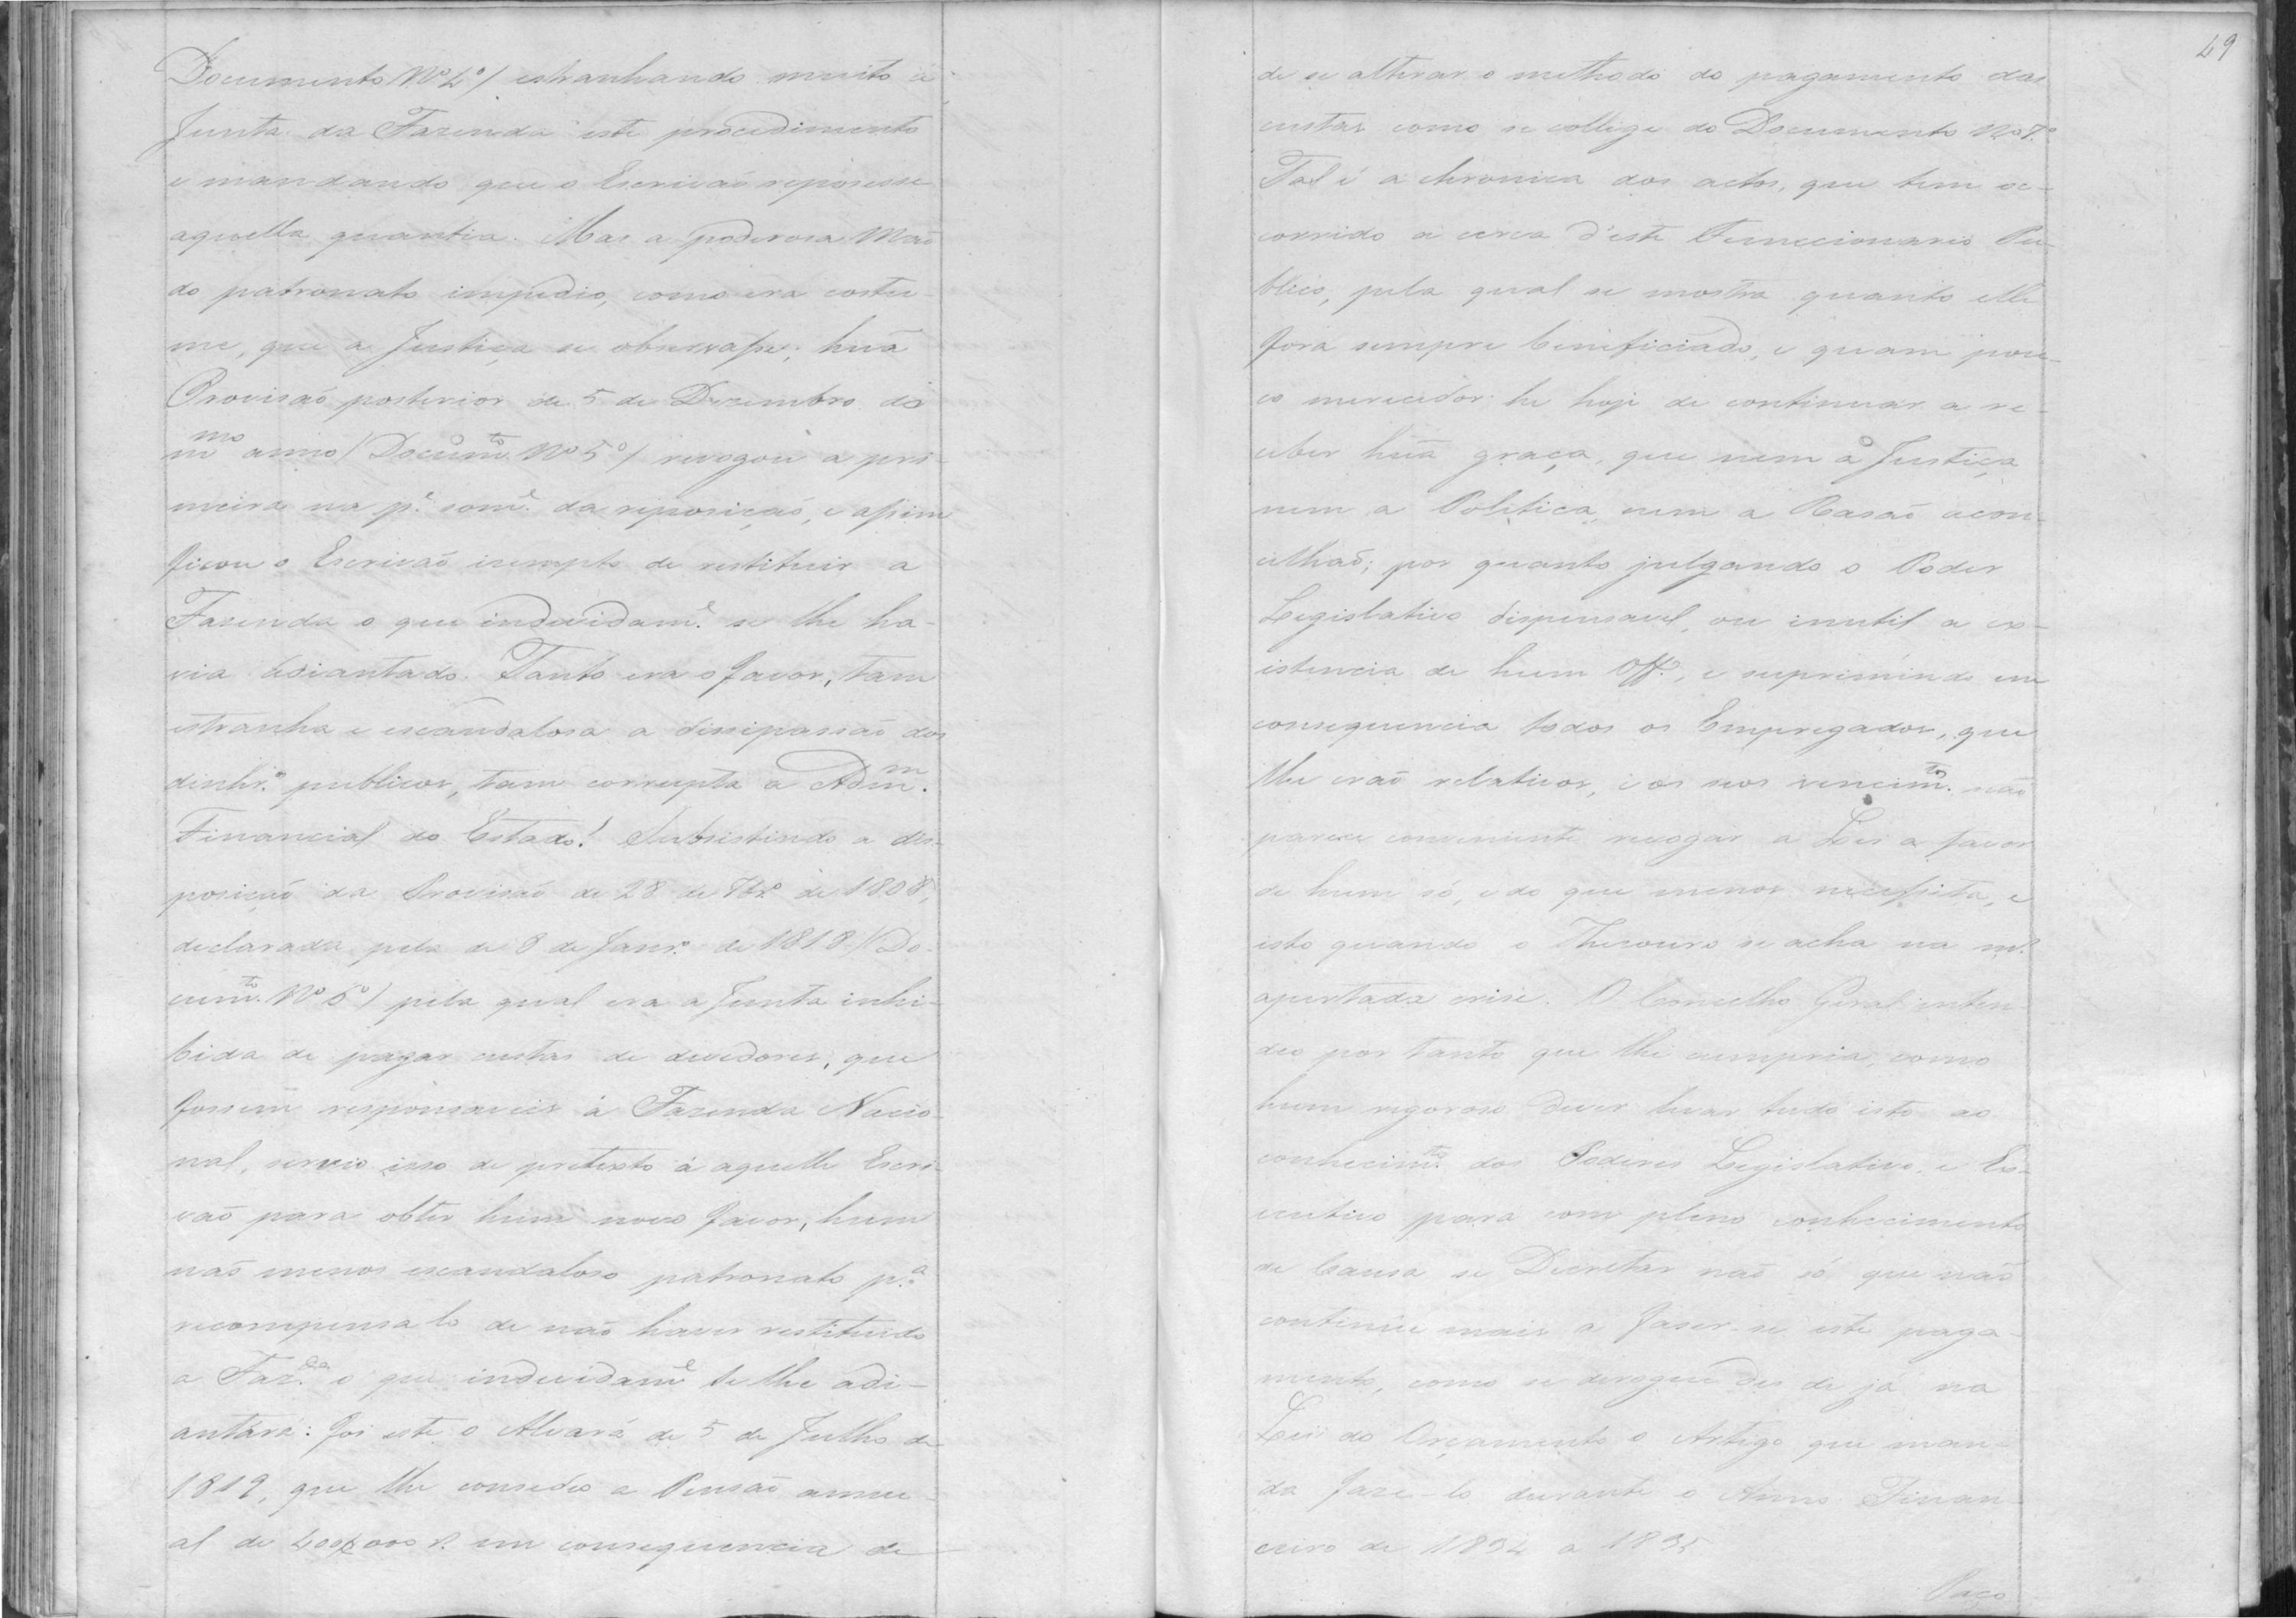 Documento Nº 4º/ estranhando muito a
Junta da Fazenda este procedimento
e mandando que o Escrivaõ reposesse
aquella quantia. Mas a poderosa Maõ
do patronato impedio, como era costu-
me, que a Justiça se observasse; huã
Provisaõ posterior de 5 de Dezembro do
mmo anno/ Documto Nº 5º/ revogou a pri-
meira na pe. some. da reposiçaõ, e assim
ficou o Escrivaõ isempto de restituir a
Fazenda o que indevidame. se lhe ha-
via adiantado. Tanto era o favor, tam
estranha e escandalosa a dissipassaõ dos
dinhros. publicos, tam corrupta a Admm.
Financial do Estado! Subsistindo a dis-
posiçaõ da Provisaõ de 28 de 7bro. de 1808,
declarada pela de 8 de Janro. de 1818/ Do-
cumto. Nº 6º/ pela qual era a Junta inhi-
bida de pagar custas de devedores, que
fossem responsaveis á Fazenda Nacio-
nal, servio isso de pretexto á aquelle Escri-
vaõ para obter hum novo favor, hum
naõ menos escandaloso patronato pa.
recompensa lo de naõ haver restituido
a Fazda. o que indevidame se lhe adi-
antára: foi este o Alvará de 5 de Julho de
1819, que lhe consedeo a Pensaõ annu-
al de 400$000 r. em consequencia de
49
de se alterar o methodo do pagamento das
custas como se collige do Documento Nº 7º
Tal é a chronica dos actos, que tem oc-
corrido a cerca d'este Funccionario Pu-
blico, pela qual se mostra quanto elle
fora sempre beneficiado, e quam pou-
co merecedor he hoje de continuar a re-
ceber huã graça, que nem a Justiça
nem a Politica, nem a Rasaõ acon-
celhaõ; por quanto julgando o Poder
Legislativo dispensavel, ou inutil a ex-
istencia de hum Offo., e suprimindo em
consequencia todos os Empregados, que
lhe eraõ relativos, e os seos vencimtos. naõ
parece conveniente revogar a Lei a favor
de hum só, e do que menos necessita, e
isto quando o Thesouro se acha na ma.
apertada crise. O Concelho Geral enten
deo por tanto que lhe cumpria, como
hum rigoroso dever levar tudo isto ao
conhecimto. dos Poderes Legislativo, e Ex-
ecutivo para com pleno conhecimento
de Causa se Decretar naõ só que naõ
continúe mais a faser-se este paga-
mento, como se derogue des de já na
Lei do Orçamento o Artigo que man-
da faze-lo durante o Anno Finan-
ceiro de 1834 a 1835
Paço